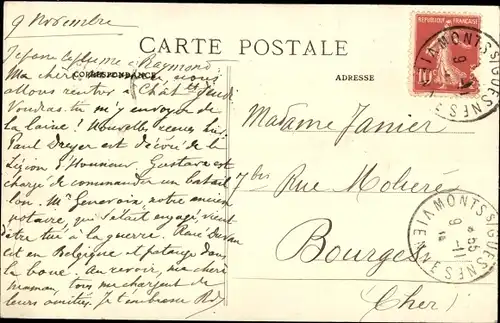 9 Novembre
CARTE POSTALE
CORRESPONDANCE
ADRESSE
RÉPUBLIQUE FRANÇAISE
10
Je passe la plume à Raymond.
Ma chère maman, nous
allons rentrer à Chât jeudi
Voudras tu m'y envoyer de
la laine? Nouvelles recues hier
Paul Dreyer est décoré de la
Légion d'Honneur. Gustave est
chargé de commander un batail
lon. Mr Genevoix notre ancien
notaire, qui s'était engagé vient
d'être tué à la guerre. René
est en Belgique et patauge dans
la boue. Au revoir, ma chère
maman, tous me chargent de
leurs amitiés. Je t'embrasse
Madame Janier
7bis Rue Molière
Bourges
(Cher)
MONTS
SIGUESNES
VIENNE
9 -11
14